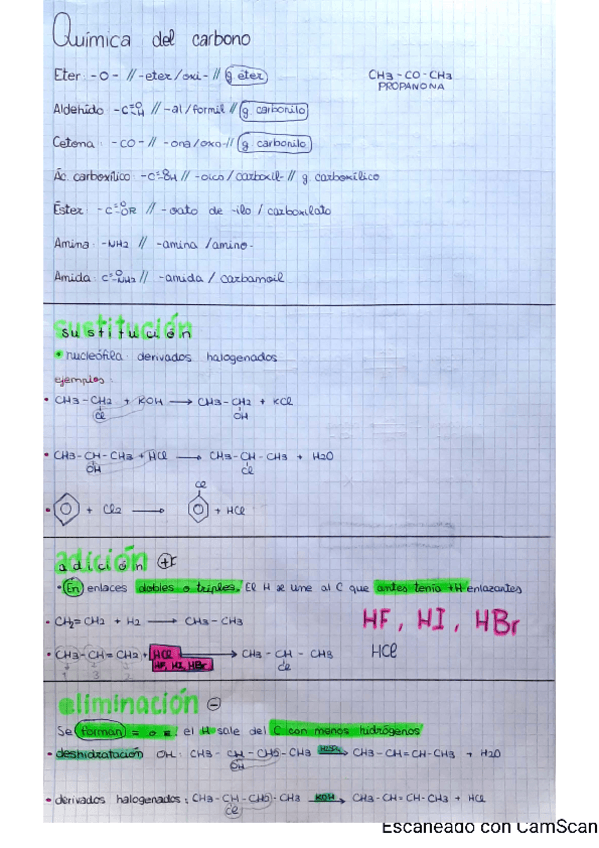 Química del carbono
Eter: -O- // -eter/oxi- // g éter
CH3-CO-CH3
PROPANONA
Aldehído -C=O-H // -al/formil // g carbonilo
Cetona: -CO- // -ona/oxo- // g carbonilo
Ác. carboxílico -C=O OH // -oico/carboxil- // g carboxílico
Éster: -C=O OR // -oato de -ilo / carboxilato
Amina: -NH2 // -amina /amino-
Amida: C=O-NH2 // -amida / carbamoil
sustitución
• nucleófila: derivados halogenados
ejemplos:
• CH3-CH2 + KOH → CH3-CH2 + KCl
Cl OH
• CH3-CH-CH3 + HCl → CH3-CH-CH3 + H2O
OH Cl
Cl
• + Cl2 → + HCl
adición +
• En enlaces dobles o triples. El H se une al C que antes tenía +H enlazantes
• CH2=CH2 + H2 → CH3-CH3
HF, HI, HBr
• CH3-CH=CH2 + HCl → CH3-CH-CH3 HCl
HF, HI, HBr Cl
1 3 2
eliminación -
Se forman = o ≡: el H sale del C con menos hidrógenos
• deshidratación OH: CH3-CH-CH2-CH3 H2SO4 → CH3-CH=CH-CH3 + H2O
OH
• derivados halogenados: CH3-CH-CH2-CH3 KOH → CH3-CH=CH-CH3 + HCl
Cl
Escaneado con CamScan